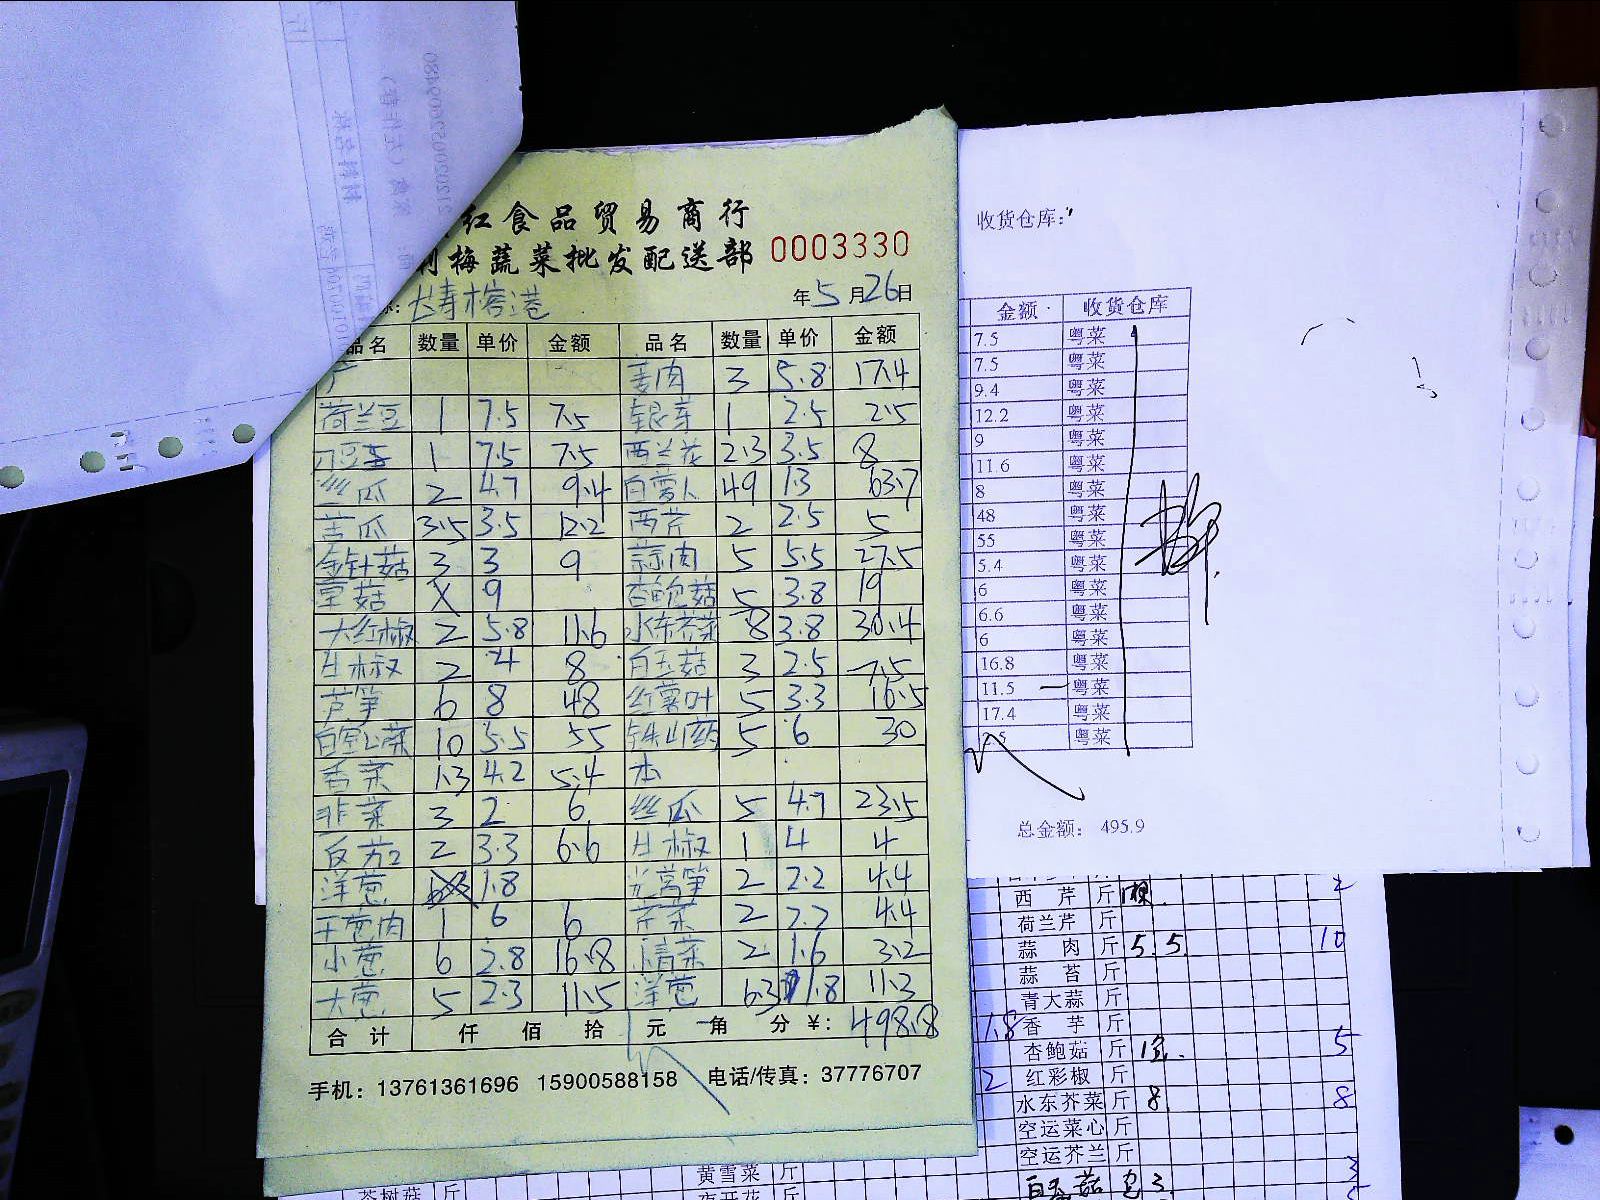 红食品贸易商行
利梅蔬菜批发配送部 0003330
长寿榕港 年5月26日
品名 数量 单价 金额 品名 数量 单价 金额
广 姜肉 3 5.8 17.4
荷兰豆 1 7.5 7.5 银芽 1 2.5 2.5
刀豆 1 7.5 7.5 西兰花 2.3 3.5 8
丝瓜 2 4.7 9.4 白萝卜 49 1.3 63.7
苦瓜 3.5 3.5 12.2 西芹 2 2.5 5
金针菇 3 3 9 蒜肉 5 5.5 27.5
草菇 X 9 杏鲍菇 5 3.8 19
大红椒 2 5.8 11.6 水东芥菜 8 3.8 30.4
尖椒 2 4 8 白玉菇 3 2.5 7.5
芦笋 6 8 48 红薯叶 5 3.3 16.5
10 5.5 55 铁山药 5 6 30
香菜 1.3 4.2 5.4 本
韭菜 3 2 6 丝瓜 5 4.7 23.5
2 3.3 6.6 尖椒 1 4 4
洋葱 1.8 光莴笋 2 2.2 4.4
干葱肉 1 6 6 芹菜 2 2.2 4.4
小葱 6 2.8 16.8 青菜 2 1.6 3.2
大葱 5 2.3 11.5 洋葱 6.3 1.8 11.3
合计 仟 佰 拾 元 角 分 ¥: 498.8
手机：13761361696 15900588158 电话/传真：37776707
收货仓库：
金额 收货仓库
7.5 粤菜
7.5 粤菜
9.4 粤菜
12.2 粤菜
9 粤菜
11.6 粤菜
8 粤菜
48 粤菜
55 粤菜
5.4 粤菜
6 粤菜
6.6 粤菜
6 粤菜
16.8 粤菜
11.5 粤菜
17.4 粤菜
2.5 粤菜
总金额： 495.9
西芹 斤 2
荷兰芹 斤
蒜肉 斤 5.5 10
蒜苔 斤
青大蒜 斤
1.8 香芋 斤
杏鲍菇 斤 5
2 红彩椒 斤
水东芥菜 斤 8 8
空运菜心 斤
空运芥兰 斤
黄雪菜 斤 白玉菇 3
茶树菇 斤 夜开花 斤